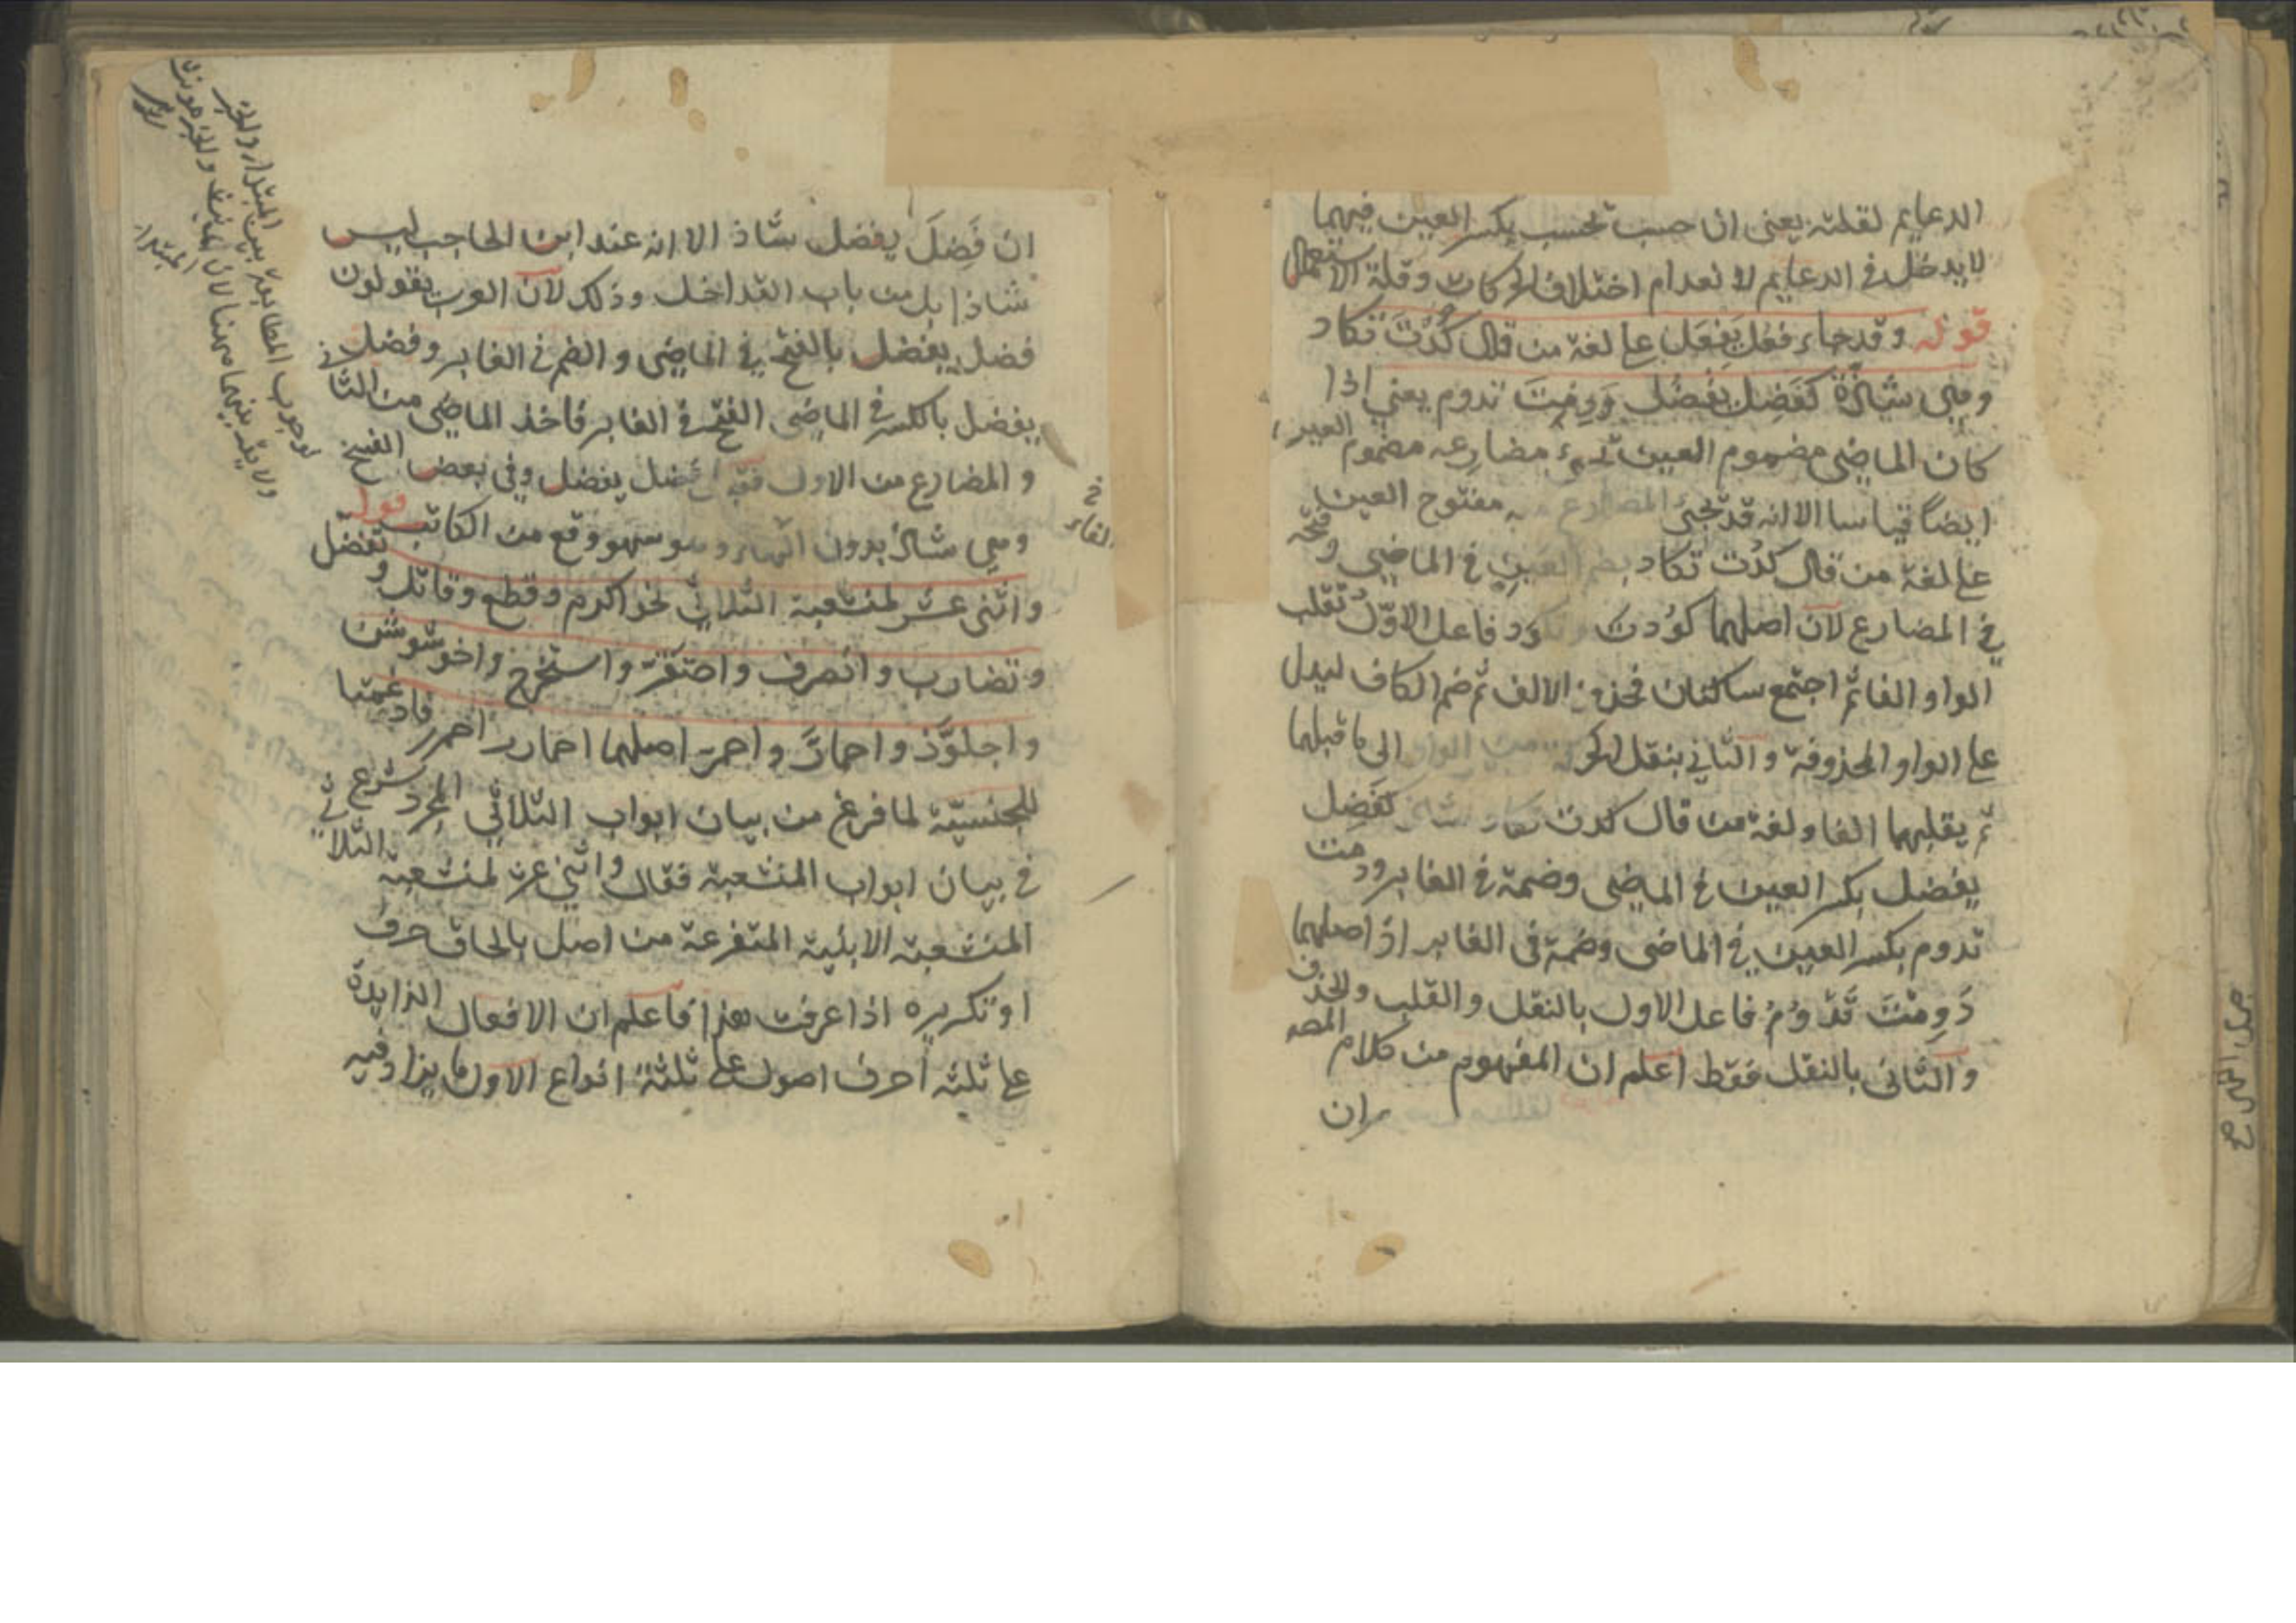 الدعايم لقلته يعنى ان حسب يحسب بكسر العين فيهما
لا يدخل فى الدعايم لانعدام اختلاف الحركات وقلة الاستعمال
قوله وقد جاء فعل يفعل على لغة من قال كُدْتَ تكاد
وهى شاذة كفَضِل يَفْضُل وَدِمْتَ تدوم يعنى اذا
كان الماضى مضموم العين يجيء مضارعه مضموم العين
ايضا قياسا الا انه قد يجئ المضارع مفتوح العين
على لغة من قال كُدت تكاد بضم العين فى الماضى وفتحه
فى المضارع لان اصلهما كَوُدت تكود فاعل الاوّل تقلب
الواو الفا ثم اجتمع ساكنان فحذف الالف ثم ضم الكاف ليدل
على الواو المحذوفة والثانى بنقل الحركة من الواو الى ما قبلها
ثم يقلبها الفا ولغة من قال كدت تكاد كفَضِل
يفضل بكسر العين فى الماضى وضمة فى الغابر ودمت
تدوم بكسر العين فى الماضى وضمة فى الغابر اذ اصلهما
دَوِمْتَ تَدْوُمُ فاعل الاول بالنقل والقلب والحذف
والثانى بالنقل فقط اعلم ان المفهوم من كلام المصه
ان
ان فَضِلَ يفضل شاذ الا انه عند ابن الحاجب ليس
شاذا بل من باب التداخل وذلك لان العرب يقولون
فضل يفضل بالفتح فى الماضى والضم فى الغابر وفضل
يفضل بالكسر فى الماضى الفتح فى الغابر فاخذ الماضى من الثانى
والمضارع من الاول فضل يفضل وفى بعض النسخ
وهى شاذ بدون الهاء وهو سهو وقع من الكاتب قوله
واثنى عشر لمنشعبة الثلاثى نحو اكرم وقطع وقاتل وتفضل
وتضارب وانصرف واحتقر واستخرج واخشوشن
واجلوّذ واحمارّ واحمرّ اصلهما احمارر احمرر فادغمتا
للجنسيّة لما فرغ من بيان ابواب الثلاثى المجرد شرع
فى بيان ابواب المنشعبة فقال واثنى عشر لمنشعبة الثلاثى
المنشعبة الابنية المتفرعة من اصل بالحاق حرف
او تكريره اذا عرفت هذا فاعلم ان الافعال الزايدة
على ثلثه احرف اصول على ثلثة انواع الاول ما يزاد فيه
لوجوب المطابقة بين المبتداء والخبر